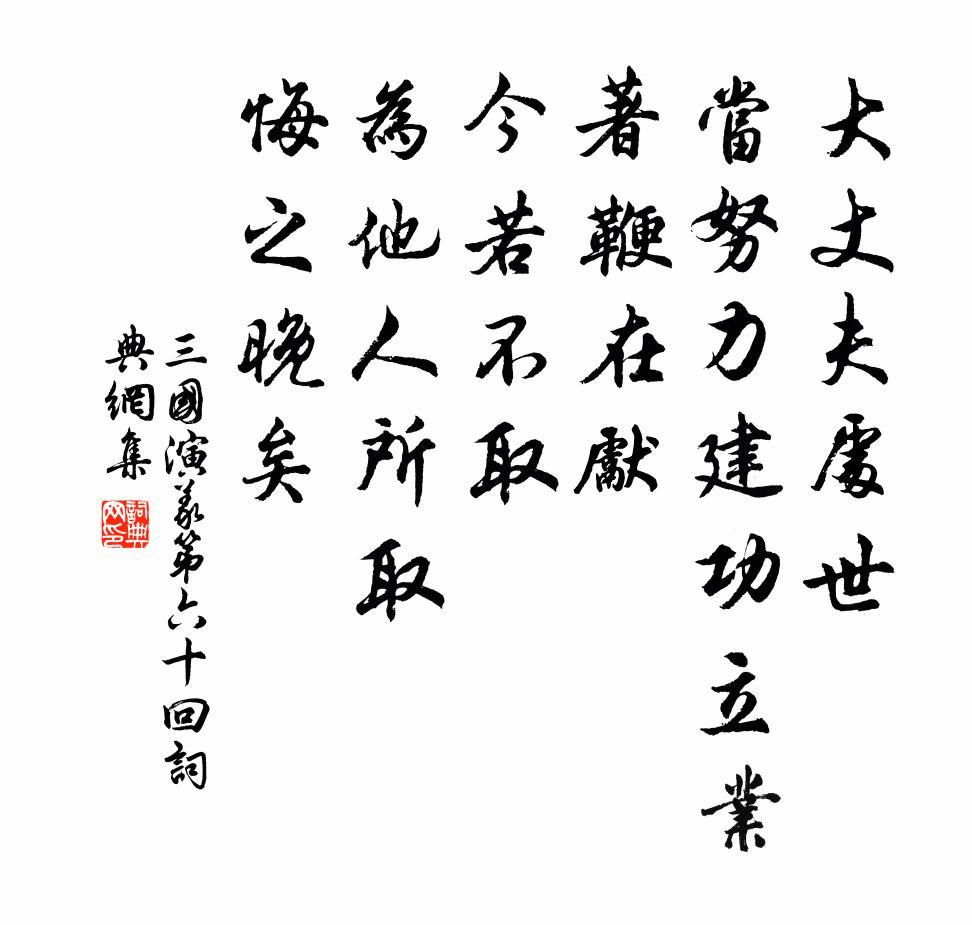 大丈夫處世
當努力建功立業
著鞭在獻
今若不取
為他人所取
悔之晚矣
三國演義第六十回詞
典網集
詞典
网印